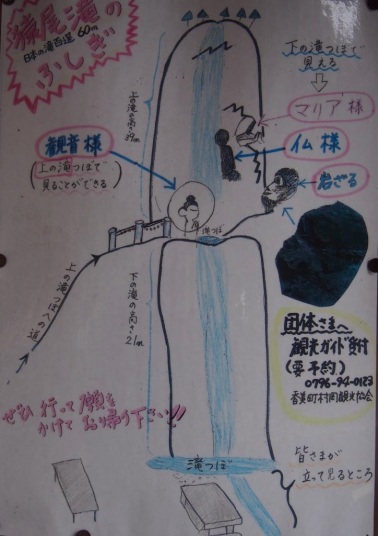 猿尾滝の
日本の滝百選 60m
ふしぎ
下の滝つぼで
見える
マリア様
仏様
岩ざる
上の滝の高さ39m
観音様
(上の滝つぼで
見ることができる)
滝つぼ
上の滝つぼへの道
下の滝の高さ21m
団体さまへ
観光ガイド受付
(要予約)
0796-94-0123
香美町村岡観光協会
ぜひ行って願を
かけてお帰り下さい!!
滝つぼ
皆さまが
立って見るところ